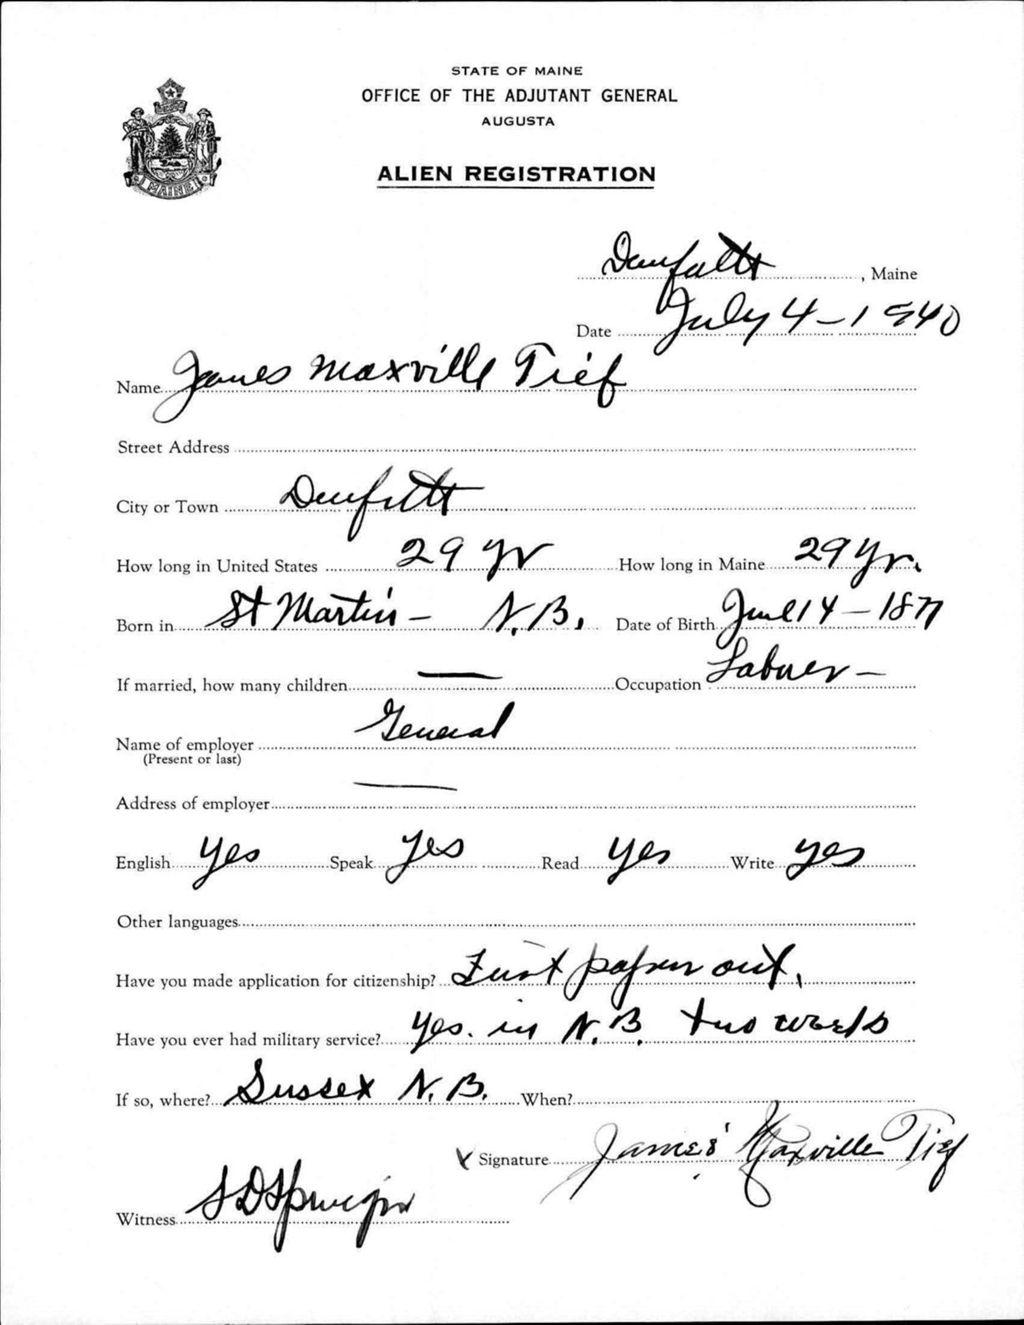 STATE OF MAINE
OFFICE OF THE ADJUTANT GENERAL
AUGUSTA
ALIEN REGISTRATION
MAINE
Danforth, Maine
Date July 4-1940
Name James Maxville Tief
Street Address
City or Town Danforth
How long in United States 29 yr How long in Maine 29 yr.
Born in St Martin's - N.B. Date of Birth June 14 - 1877
If married, how many children — Occupation Laborer -
Name of employer General
(Present or last)
Address of employer —
English Yes Speak Yes Read Yes Write yes
Other languages
Have you made application for citizenship? First paper out.
Have you ever had military service? Yes. in N.B. two weeks
If so, where? Sussex N.B. When?
Signature James Maxville Tief
Witness